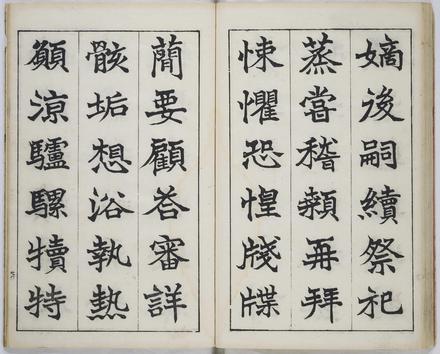 嫡後嗣續祭祀
蒸嘗稽顙再拜
悚懼恐惶牋牒
蕳要顧荅審詳
骸垢想浴執熱
願涼驢騾犢特